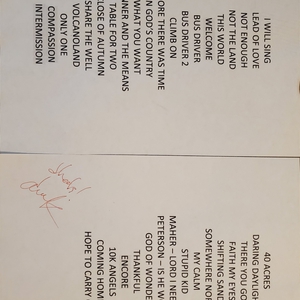 I WILL SING
LEAD OF LOVE
NOT ENOUGH
NOT THE LAND
THIS WORLD
WELCOME
BUS DRIVER
BUS DRIVER 2
CLIMB ON
ORE THERE WAS TIME
N GOD'S COUNTRY
WHAT YOU WANT
NER AND THE MEANS
TABLE FOR TWO
LOSE OF AUTUMN
SHARE THE WELL
VOLCANOLAND
ONLY ONE
COMPASSION
INTERMISSION
40 ACRES
DARING DAYLI
THERE YOU GO
FAITH MY EYES
SHIFTING SAND
SOMEWHERE NOR
MY CALM
STUPID KID
MAHER – LORD I NEE
PETERSON – IS HE W
GOD OF WONDE
THANKFUL
ENCORE
10K ANGELS
COMING HOM
HOPE TO CARRY